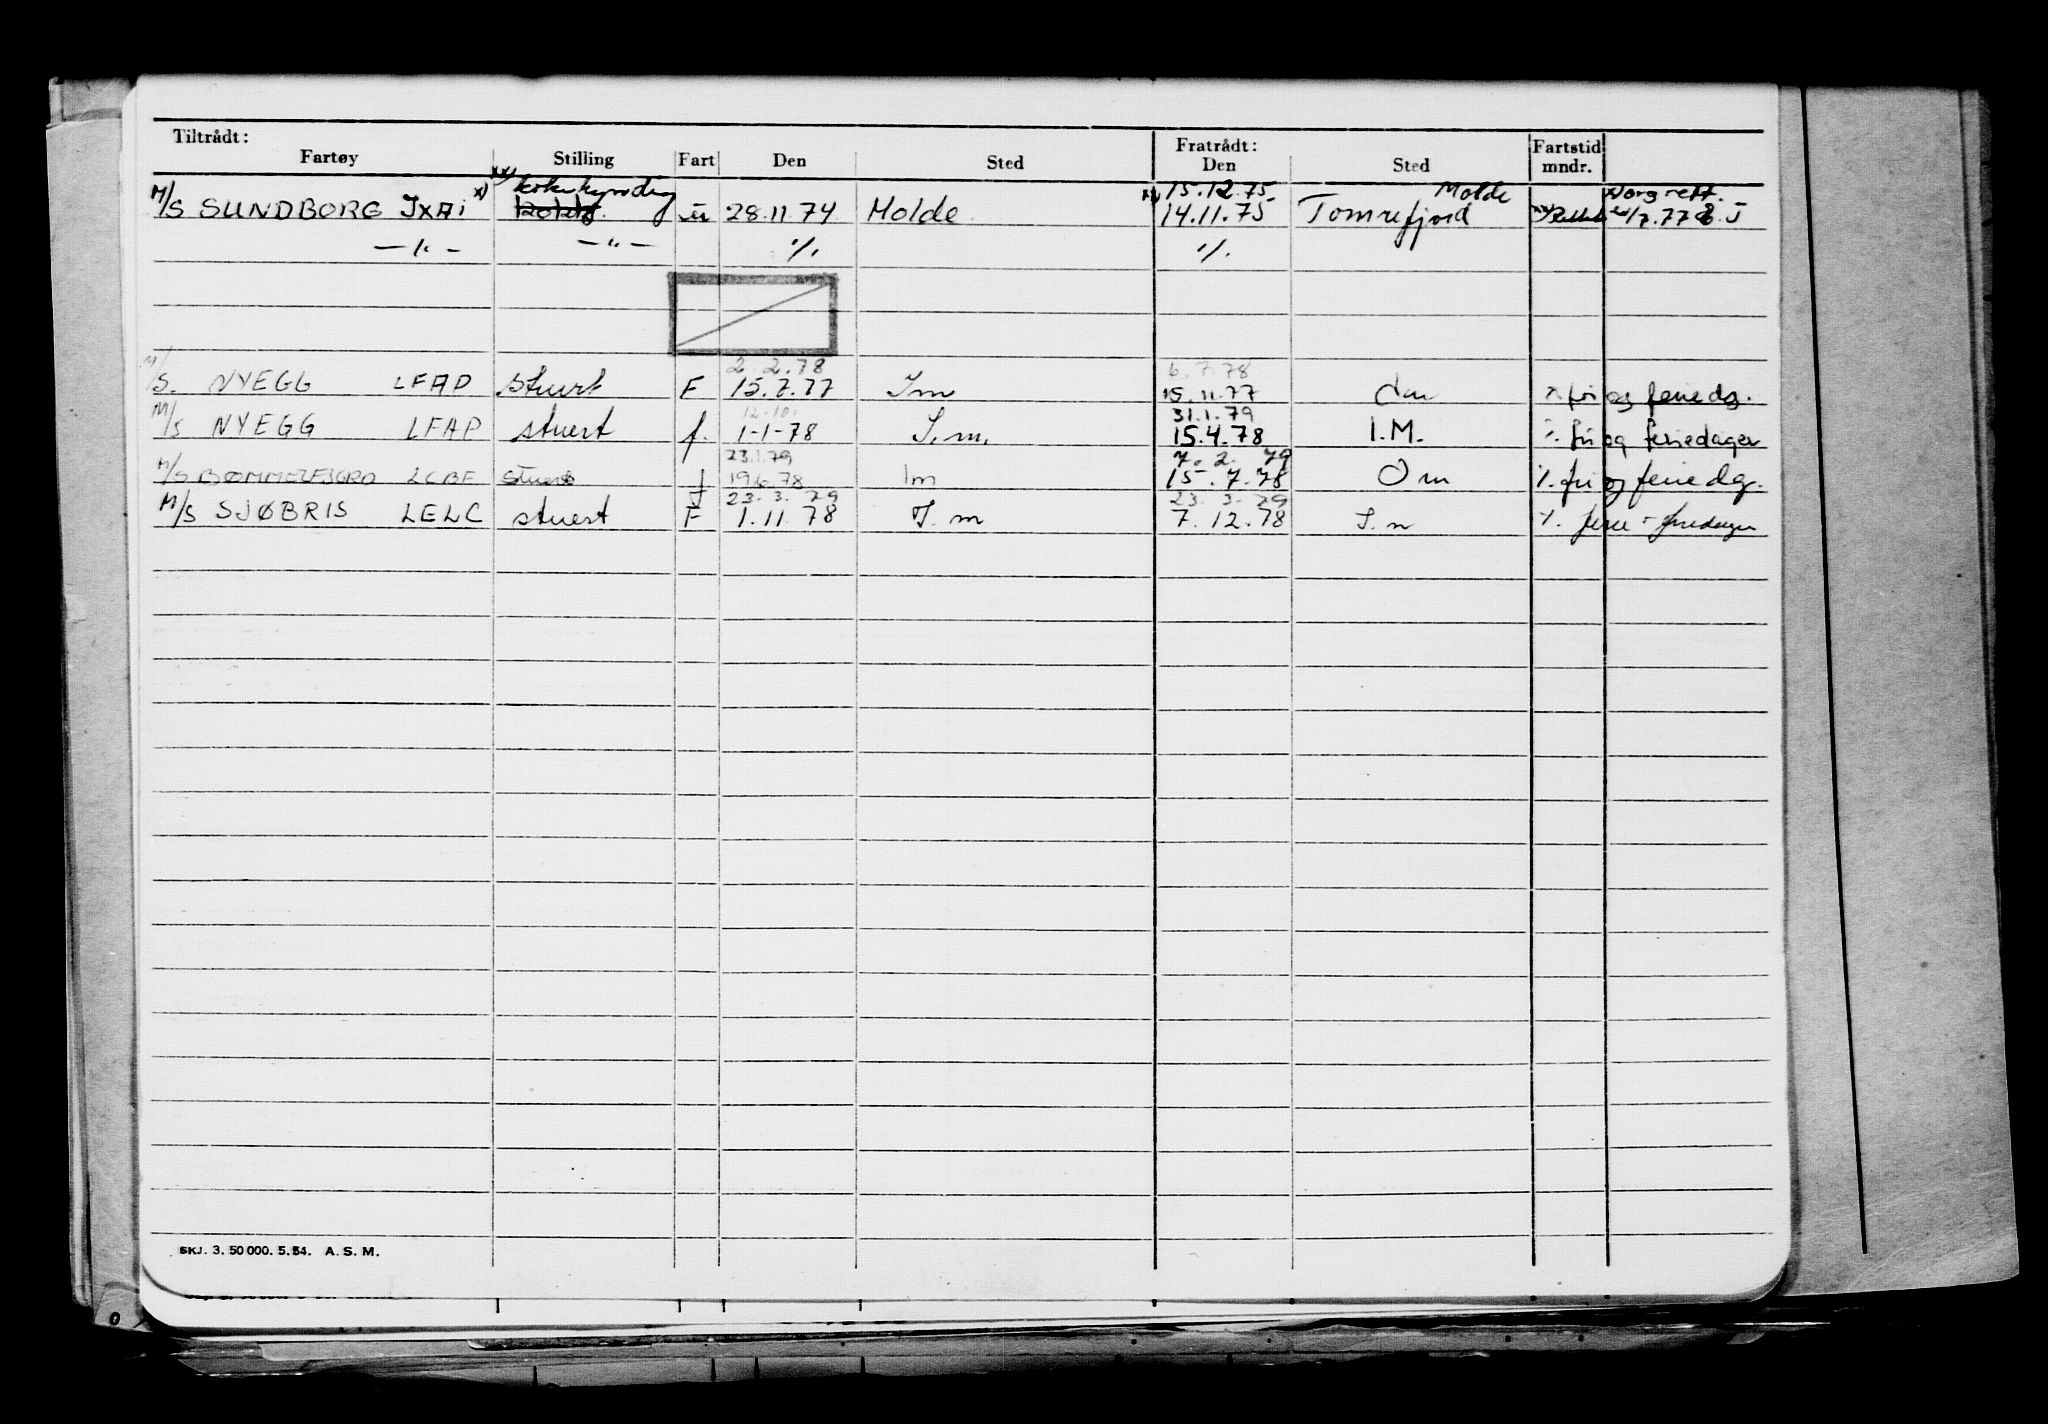 Tiltrådt: Fratrådt: Fartstid
Fartøy Stilling Fart Den Sted Den Sted mndr.
xx) kokekyndig 15.12.75 Molde x) org rett.
M/S SUNDBORG JXAI x) u 28.11 74 Molde 14.11.75 Tomrefjord 1/7.77
— " — — " — "/. "/.
2.2.78 6.7.78
M/S. NYEGG LFAP Stuert F 15.7.77 Im 15.11.77 fri og feriedg.
12.10. 31.1.79
M/S NYEGG LFAP stuert f. 1-1-78 I.m. 15.4.78 I.M. ٪. fri og feriedager
23.1.79 7. 2. 79
M/S BØMMELFJORD LCBE stuert f 19.6.78 Im 15.7.78 Om ٪. fri og feriedg.
23. 3. 79 23. 3. 79
M/S SJØBRIS LELC stuert F 1.11.78 I.m 7.12.78 I.m ٪. ferie + fridager
SKJ. 3. 50 000. 5.54. A. S. M.